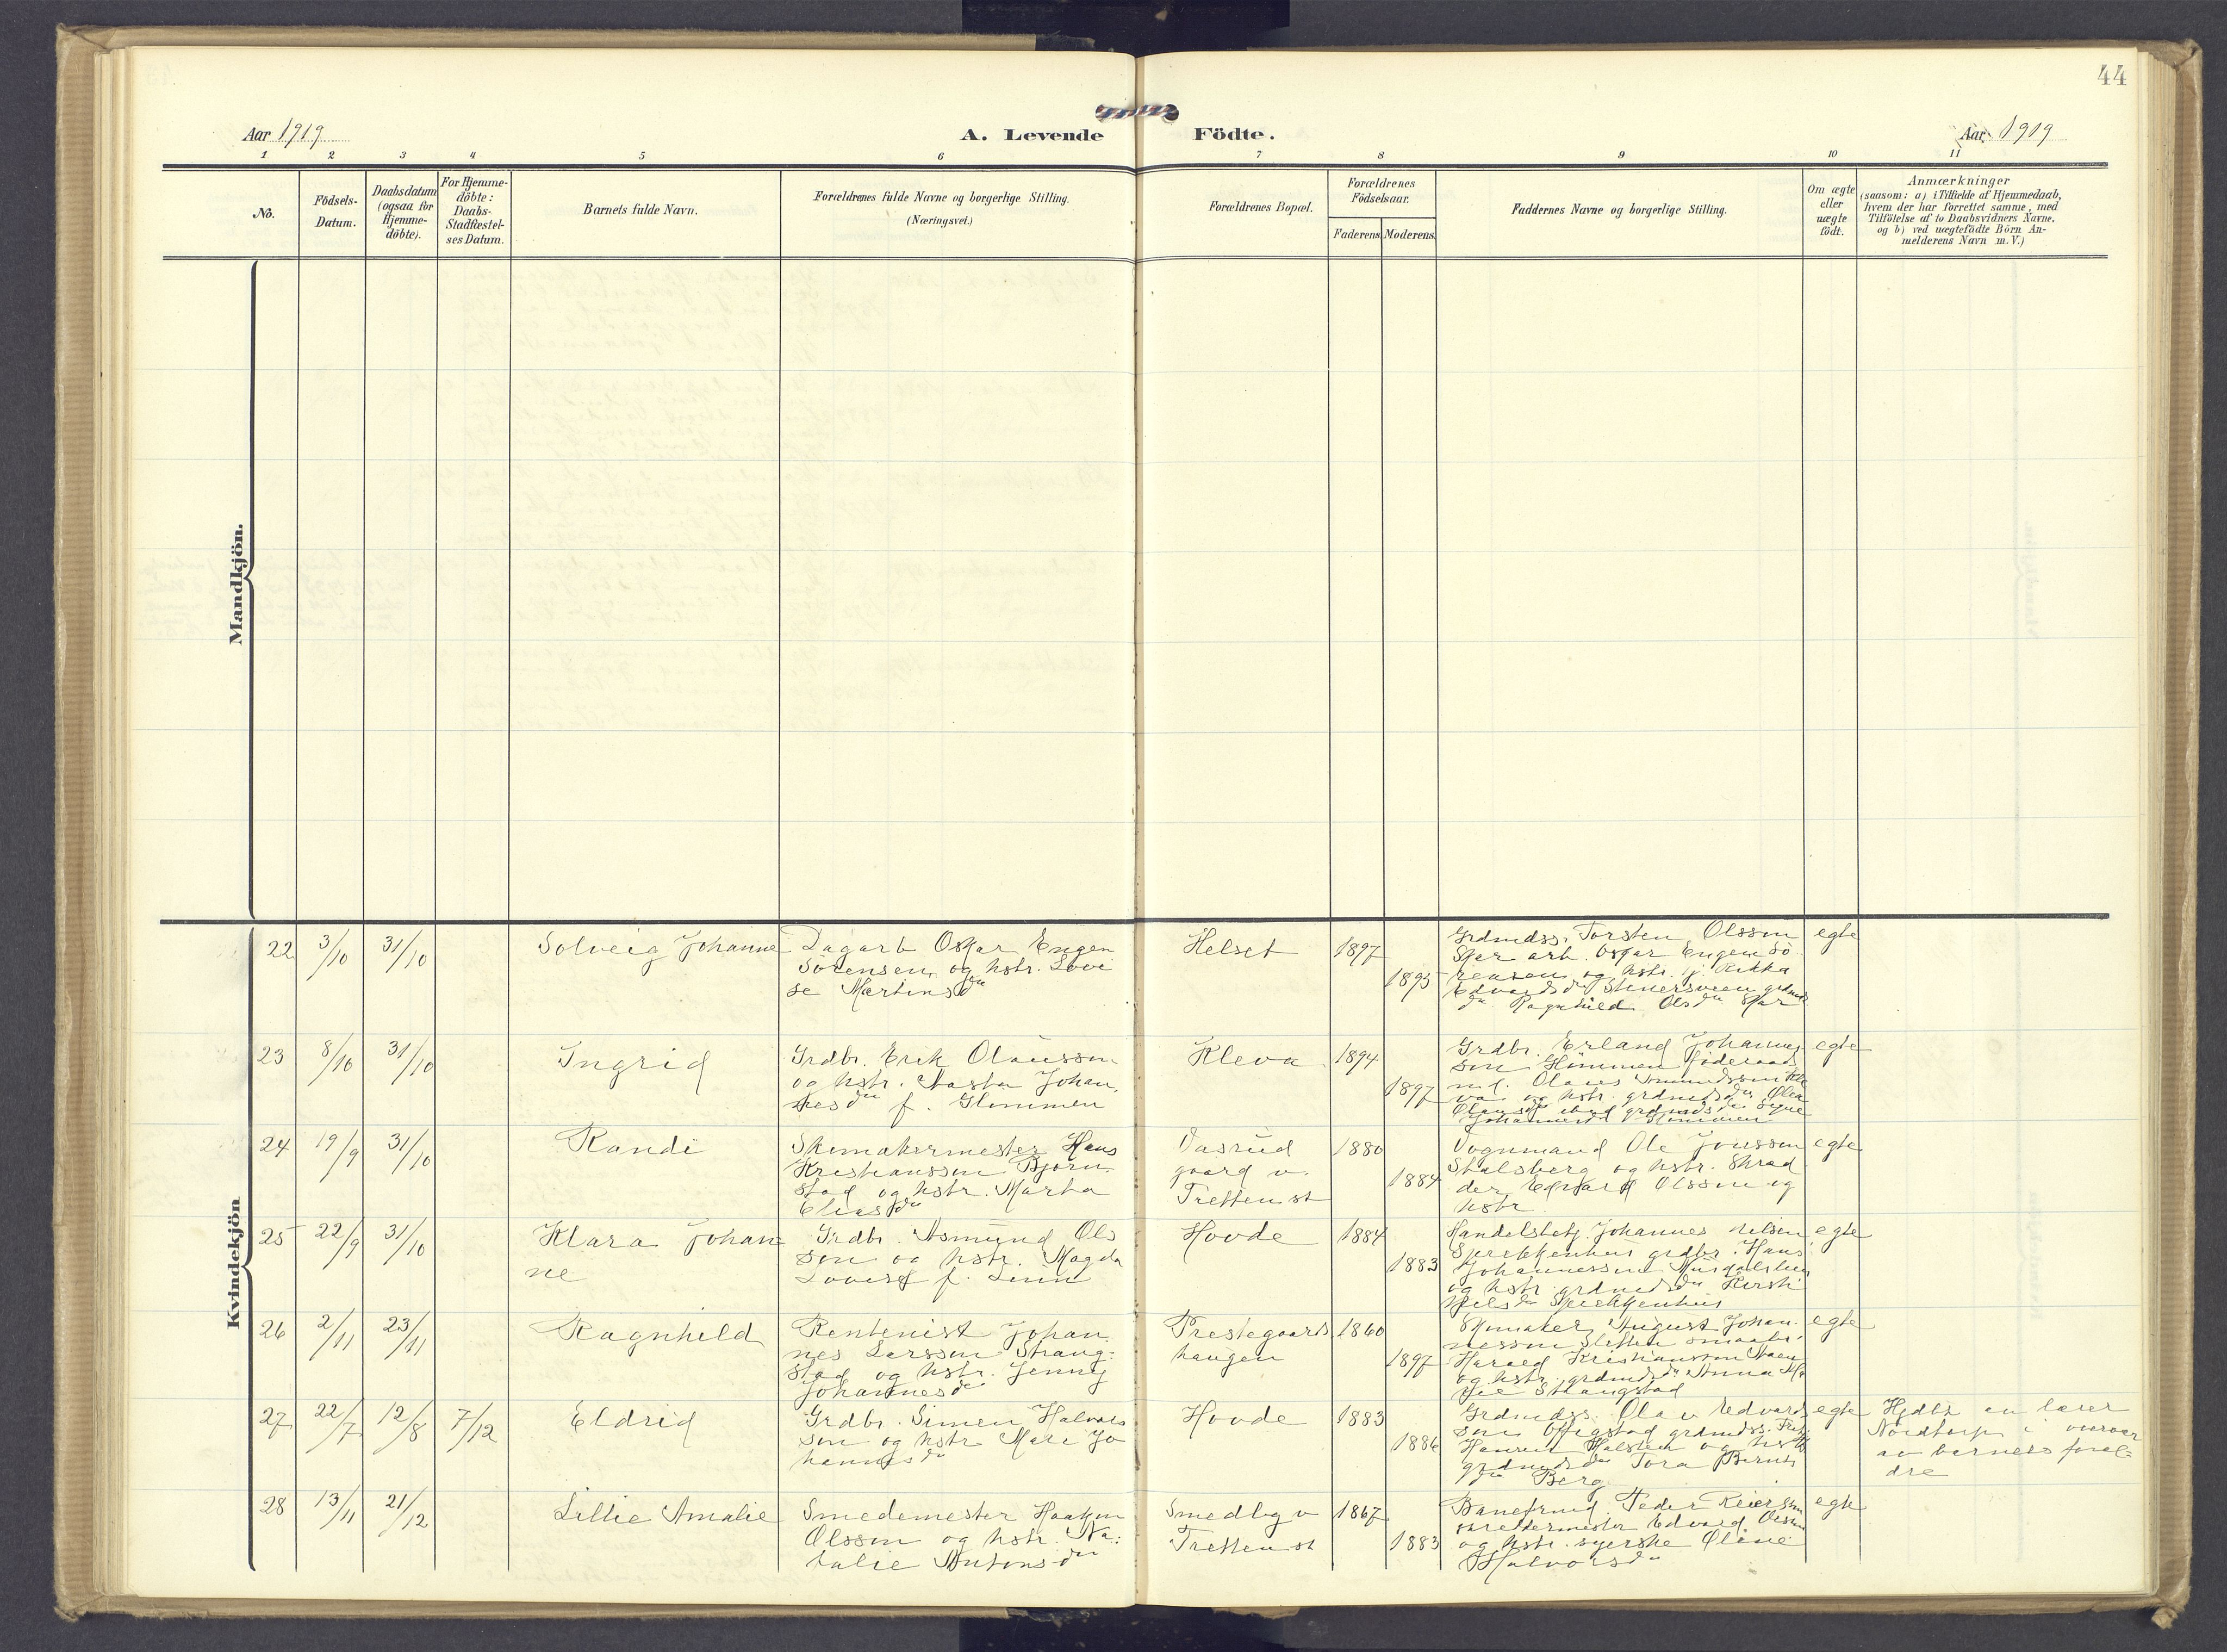 44
Aar 1919
A. Levende Födte.
Aar 1919
1 2 3 4 5 6 7 8 9 10 11
No.
Födsels-
Datum.
Daabsdatum
(ogsaa for
Hjemme-
döbte).
For Hjemme-
döbte:
Daabs-
Stadfæstel-
ses Datum.
Barnets fulde Navn.
Forældrenes fulde Navne og borgerlige Stilling.
(Næringsvei.)
Forældrenes Bopæl.
Forældrenes
Födselsaar.
Faderens. Moderens.
Faddernes Navne og borgerlige Stilling.
Om ægte
eller
uægte
födt.
Anmærkninger
(saasom: a) i Tilfælde af Hjemmedaab,
hvem der har forrettet samme, med
Tilföielse af to Daabsvidners Navne,
og b) ved uægtefödte Börn An-
melderens Navn m. V.)
Mandkjön.
Kvindekjön
22 3/10 31/10
Solveig Johanne
Dagarb Oskar Engen
Sörensen og hstr. Lovi
se Martinsdtr
Helset
1897
1895
Grdmdss. Torsten Olsson
Skar arb. Oskar Engen Sö
rensen og hstr. pj.
Edvardsdtr grdmds
dtr Ragnhild Olsdtr Skar
egte
23 8/10 31/10
Ingrid
Grdbr. Erik Olausson
og hstr. Aasta Johan
nesdtr f. Glommen
Kleva
1894
1897
Grdbr. Erland Johannes
son Glommen föderaad
m. Olaus Amundsson Kle
va og hstr. grdmdsdtr Olea
Olausdtr ibid grdmdsdtr Signe
Johannesd Glommen
egte
24 19/9 31/10
Randi
Skomakermester Hans
Kristiansson Bjørn
stad og hstr. Marta
Eliasdtr
Vasrud
gaard v.
Tretten st
1880
1884
Vognmand Ole Jonsson
Stalsberg og hstr. Skrad
der Edvard Olsson og
hstr.
egte
25 22/9 31/10
Klara Johan
ne
Grdbr. Asmund Ols
son og hstr. Magda
Lovise f. Linn
Hovde
1884
1883
Handelsbetj. Johannes Nilsen
Sprekkenhus grdbr. Hans
Johannesson Musdalslien
og hstr. grdmdsdtr Kirsti
Nilsdtr Sprekkenhus
egte
26 2/11 23/11
Ragnhild
Rentenist Johan
nes Larsson Strang-
stad og hstr. Jenny
Johannesdtr
Prestegaards
haugen
1860
1897
Skomaker August Johan-
nesson Sletten smaabr.
Harald Kristiansson
og hstr. grdmdsdtr Anna Ma
rie Strangstad
egte
27 22/7 12/8 7/12
Eldrid
Grdbr. Simen Halvors
son og hstr Mari Jo
hannesdtr
Hovde
1883
1886
Grdmdss. Olav Edvards
son Offigstad grdmdss.
Hansen Holsten og hstr
grdmdsdtr Tora Bernts
dtr Berg
egte
Hjdbt av lærer
Nordtorp i overvær
av barnets foræl-
dre
28 13/11 21/12
Lillie Amalie
Smedemester Haakon
Olsson og hstr. Na-
talie Antonsdtr
Smedbg v
Tretten st
1867
1883
Baneformd. Peder Reiersson
skreddermester Edvard Olsson
og hstr. syerske Oline
Halvorsdtr
egte